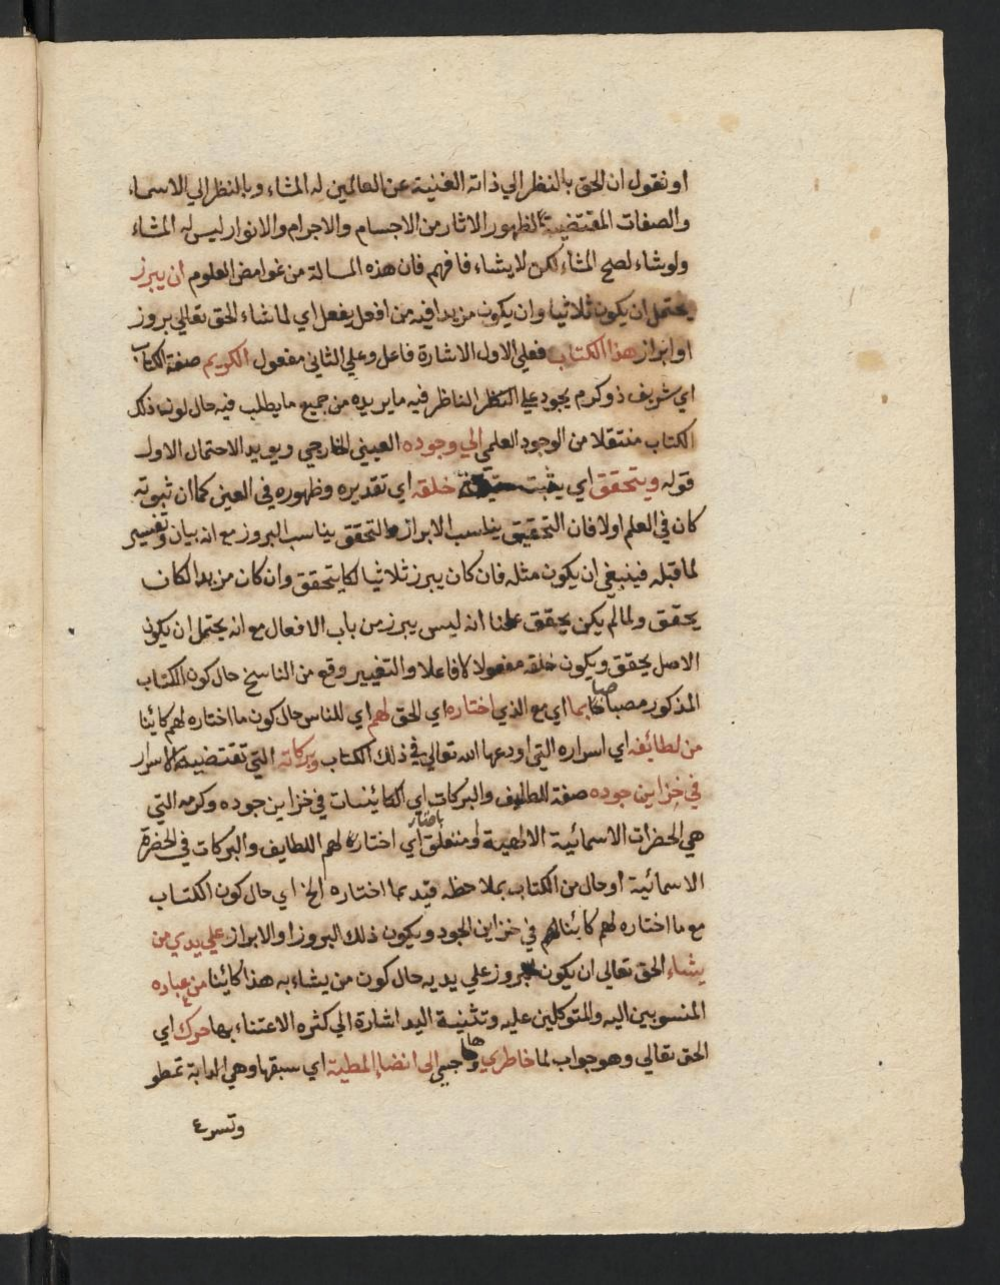 او نقول ان الحق بالنظر الي ذاته الغنية عن العالمين له المشاء وبالنظر الي الاسماء
والصفات المقتضية لظهور الاثار من الاجسام والاجرام والانوار ليس له المشاء
ولو يشاء لصح المشاء لكن لا يشاء فافهم فان هذه المسالة من غوامض العلوم ان يبرز
يحتمل ان يكون ثلاثيا وان يكون مزيدا فيه من افعل يفعل اي لما شاء الحق تعالي بروز
او ابراز هذا الكتاب فعلي الاول الاشارة فاعل وعلي الثاني مفعول الكريم صفة الكتاب
اي شريف ذو كرم يجود علي الناظر فيه ما يريده من جميع ما يطلب فيه حال كون ذلك
الكتاب منتقلا من الوجود العلمي الي وجوده العيني الخارجي ويويد الاحتمال الاول
قوله ويتحقق اي يثبت خلقه اي تقديره وظهوره في العين كما ان ثبوته
كان في العلم اولا فان التحقيق يناسب الابراز والتحقق يناسب البروز مع انه بيان وتفسير
لما قبله فينبغي ان يكون مثله فان كان يبرز ثلاثيا لكا يتحقق وان كان مزيدا لكان
يحقق ولما لم يكن يحقق علمنا انه ليس يبرز من باب الافعال مع انه يحتمل ان يكون
الاصل يحقق ويكون خلقه مفعولا كا فاعلا والتغيير وقع من الناسخ حال كون الكتاب
المذكور مصاحبا بما اي مع الذي اختاره اي الحق لهم اي للناس حال كون ما اختاره لهم كائنا
من لطائفه اي اسراره التي اودعها الله تعالي في ذلك الكتاب وبركاته التي تقتضيه الاسرار
في خزاين جوده صفة للطايف والبركات اي الكائنات في خزاين جوده وكرمه التي
هي الحضرات الاسمائية الالهية او متعلق باختاره اي اختاره لهم اللطايف والبركات في الحضرة
الاسمائية او حال من الكتاب بملاحظه قيد بما اختاره الخ اي حال كون الكتاب
مع ما اختاره لهم كائنا لهم في خزاين الجود ويكون ذلك البروز او الابراز علي يدي من
يشاء الحق تعالي ان يكون بروز علي يديه حال كون من يشاء به هذا كائنا من عباده
المنسوبين اليه والمتوكلين عليه وتثنية اليد اشارة الي كثره الاعتناء بها حرك اي
الحق تعالي وهو جواب لما خاطري وهاجسي الى انضاء المطية اي سبقها وهي الدابة تمطو
وتسرع